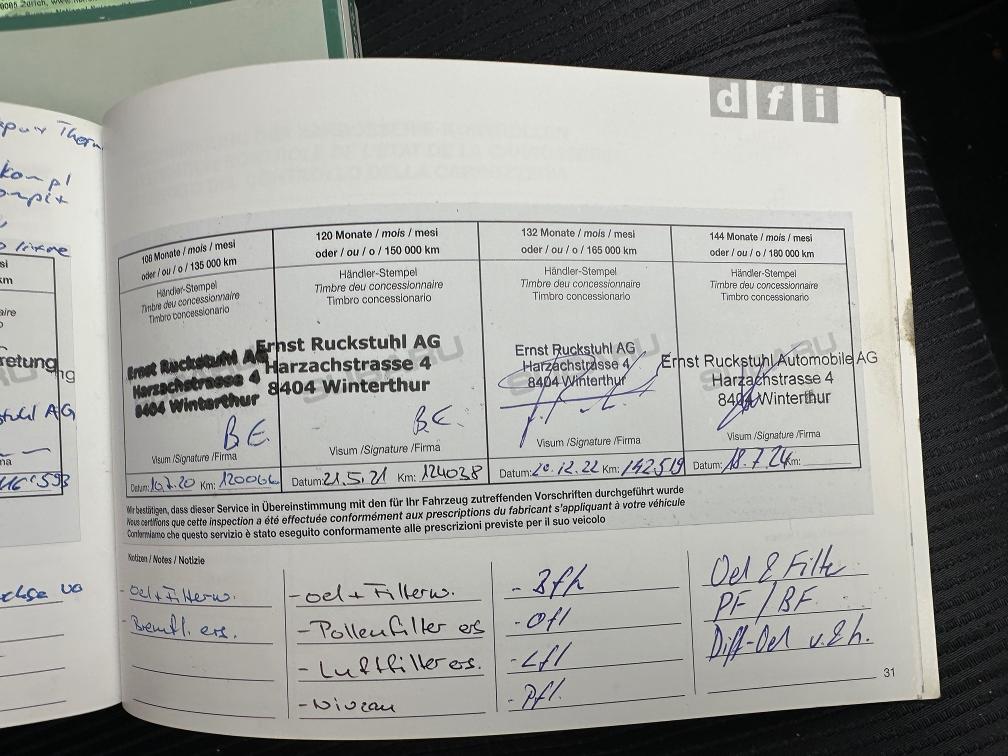 9005 Zürich, www.
d f i
Therm
kompl
108 Monate / mois / mesi
oder / ou / o / 135 000 km
Händler-Stempel
Timbre deu concessionnaire
Timbro concessionario
Ernst Ruckstuhl AG
Harzachstrasse 4
8404 Winterthur
BE
Visum /Signature /Firma
Datum: 10.7.20 Km: 120064
120 Monate / mois / mesi
oder / ou / o / 150 000 km
Händler-Stempel
Timbre deu concessionnaire
Timbro concessionario
Ernst Ruckstuhl AG
Harzachstrasse 4
8404 Winterthur
BE.
Visum /Signature /Firma
Datum: 21.5.21 Km: 124038
132 Monate / mois / mesi
oder / ou / o / 165 000 km
Händler-Stempel
Timbre deu concessionnaire
Timbro concessionario
Ernst Ruckstuhl AG
Harzachstrasse 4
8404 Winterthur
Visum /Signature /Firma
Datum: 20.12.22 Km: 142519
144 Monate / mois / mesi
oder / ou / o / 180 000 km
Händler-Stempel
Timbre deu concessionnaire
Timbro concessionario
Ernst Ruckstuhl Automobile AG
Harzachstrasse 4
8404 Winterthur
Visum /Signature /Firma
Datum: 18.7.24 Km:
Wir bestätigen, dass dieser Service in Übereinstimmung mit den für Ihr Fahrzeug zutreffenden Vorschriften durchgeführt wurde
Nous certifions que cette inspection a été effectuée conformément aux prescriptions du fabricant s'appliquant à votre véhicule
Confermiamo che questo servizio è stato eseguito conformamente alle prescrizioni previste per il suo veicolo
Notizen / Notes / Notizie
- Oel+Filterw.
- Bremfl. ers.
- Oel + Filterw.
- Pollenfilter es
- Luftfilter es.
- Niveau
- Bfh
- Ofl
- Lfl
- Pfl.
Oel & Filter
PF / BF
Diff-Oel v.&h.
31